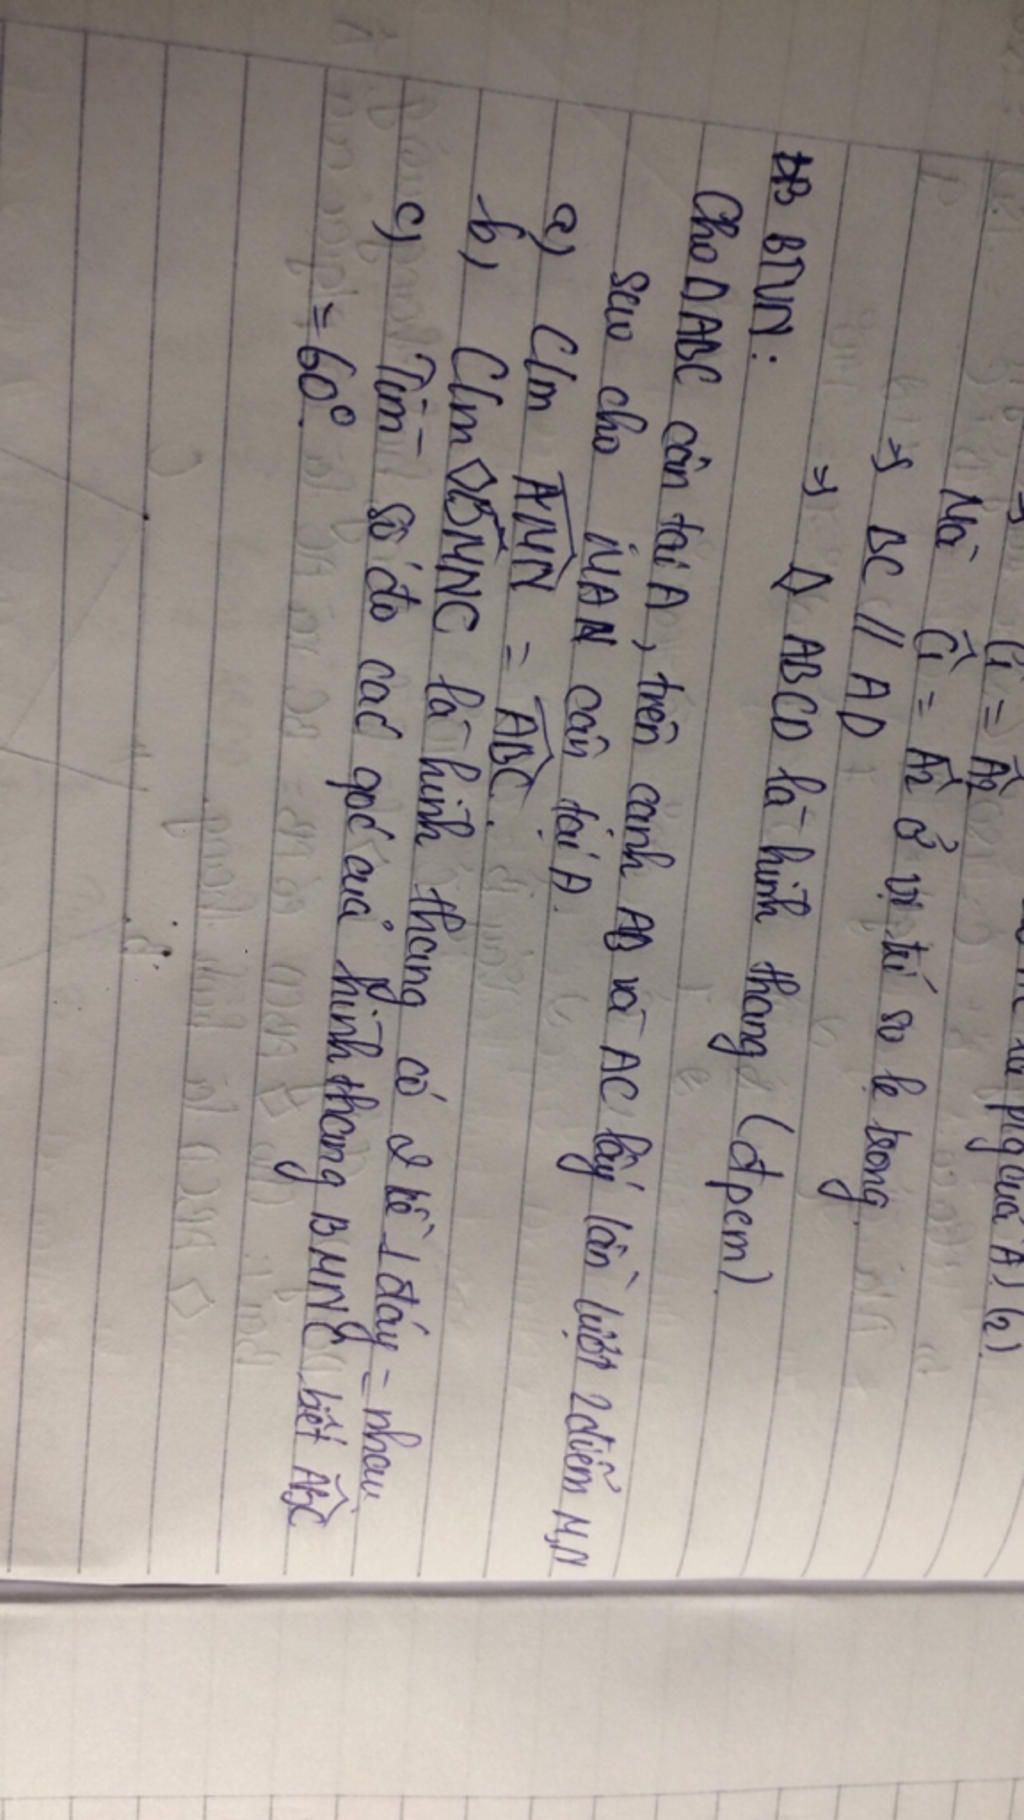 Ĉ1 = Â2
Mà Ĉ1 = Â2 ở vị trí so le trong
=> BC // AD
=> ABCD là hình thang (đpcm).
BTVN:
Cho Δ ABC cân tại A, trên cạnh AB và AC lấy lần lượt 2 điểm M,N
sao cho MAN cân tại A.
a) C/m AMN = ABC.
b) C/m ◇BMNC là hình thang có 2 kề 1 đáy = nhau
c) Tìm số đo các góc của hình thang BMNC biết ABC
= 60°.